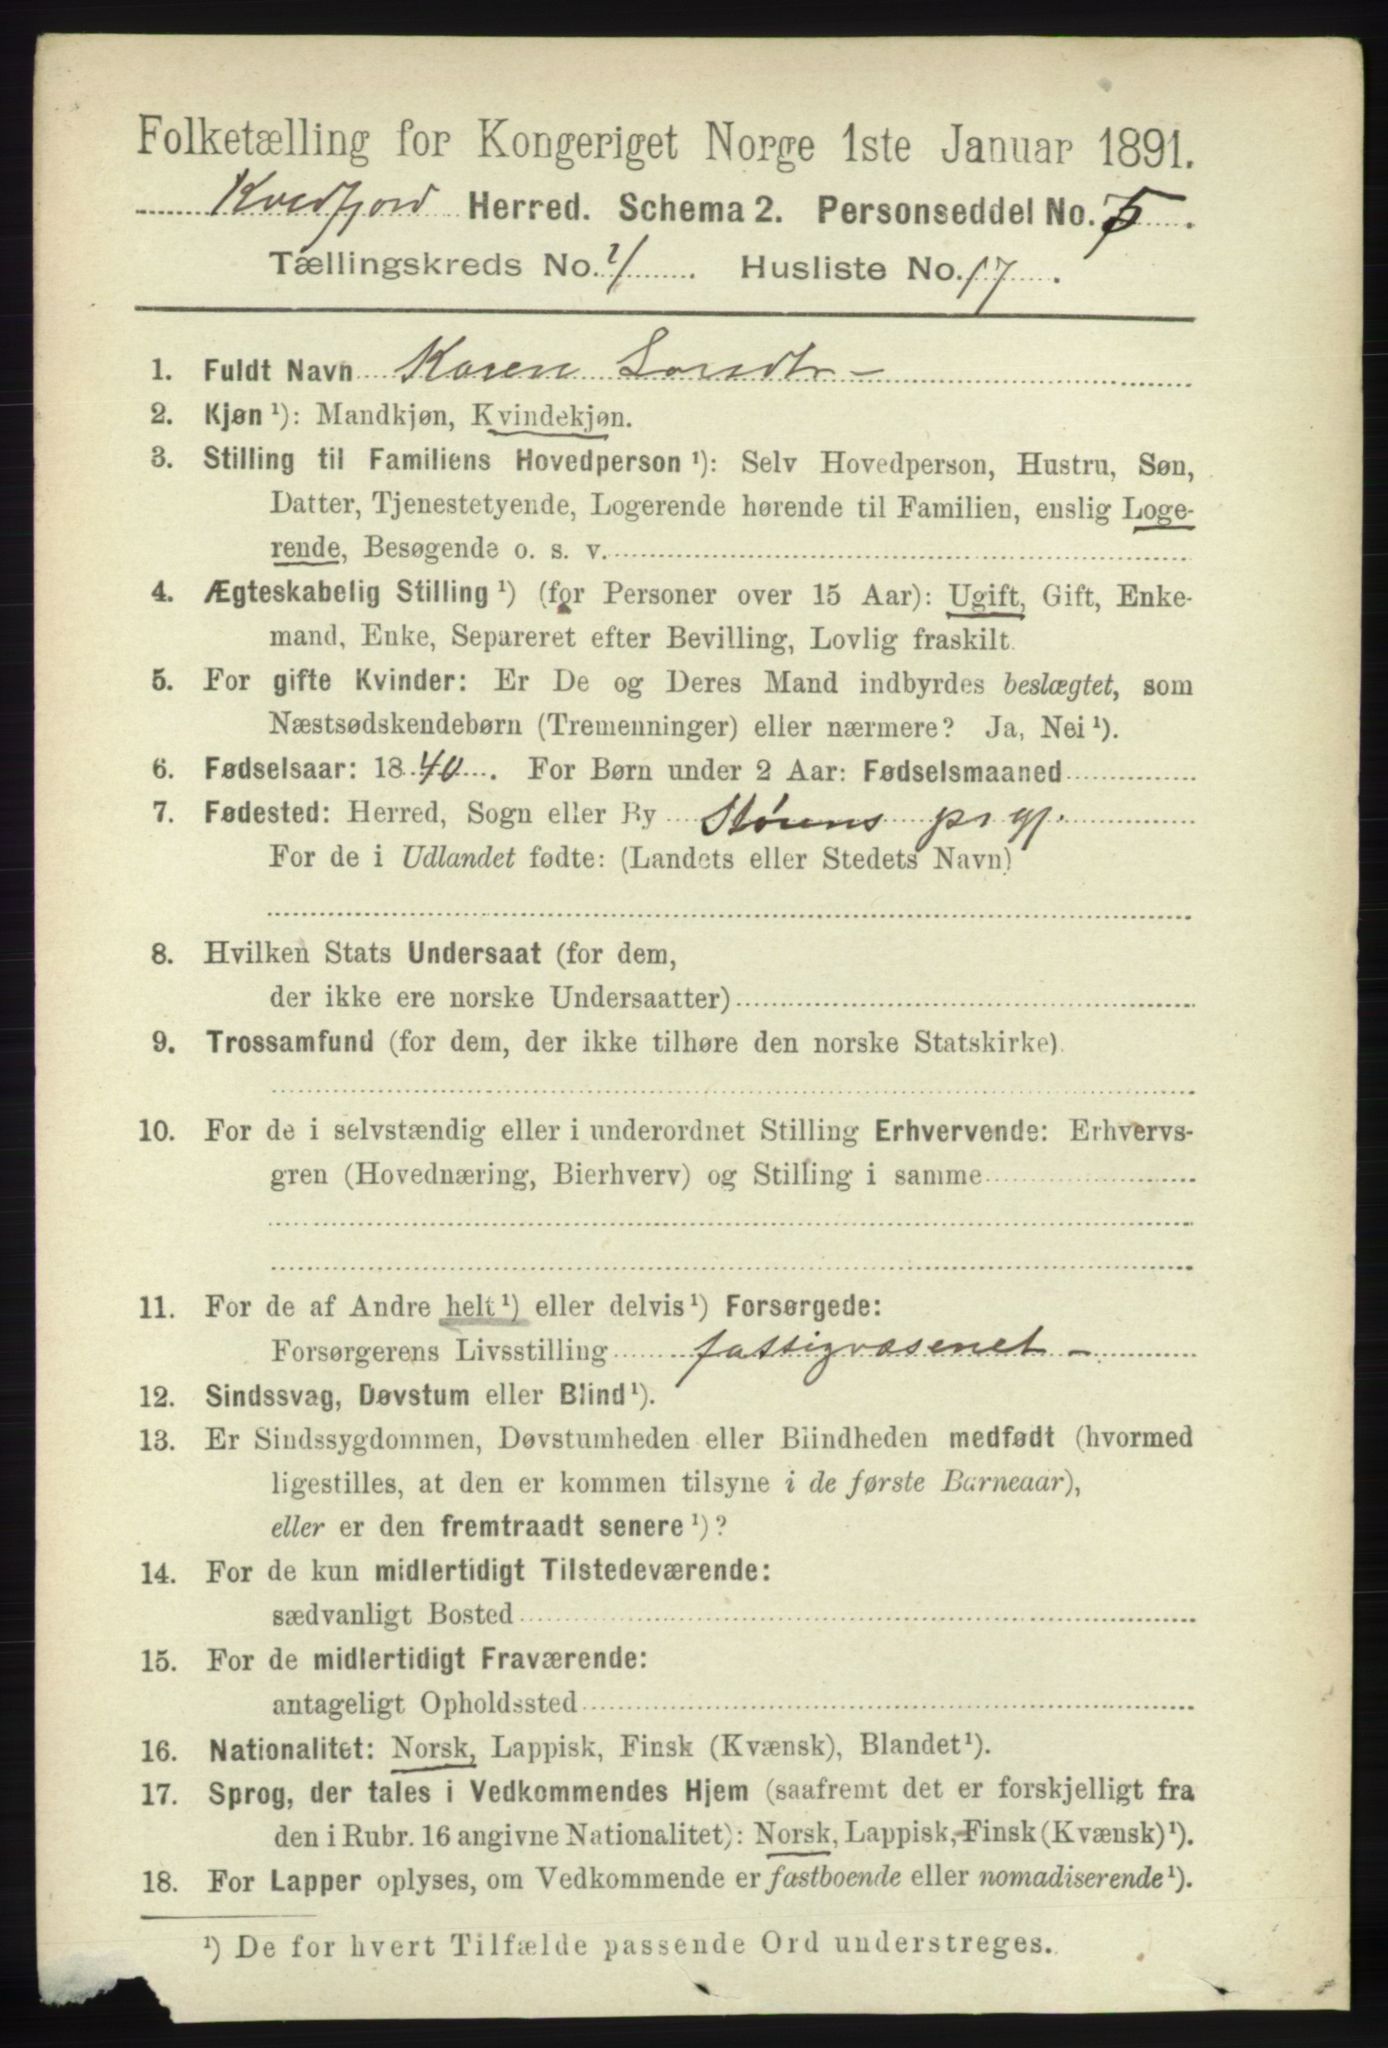 Folketælling for Kongeriget Norge 1ste Januar 1891.
Kvedfjord Herred. Schema 2. Personseddel No. 5.
Tællingskreds No. 4. Husliste No. 17.
1. Fuldt Navn Karen
2. Kjøn ¹): Mandkjøn, Kvindekjøn.
3. Stilling til Familiens Hovedperson ¹): Selv Hovedperson, Hustru, Søn,
Datter, Tjenestetyende, Logerende hørende til Familien, enslig Loge-
rende, Besøgende o. s. v.
4. Ægteskabelig Stilling ¹) (for Personer over 15 Aar): Ugift, Gift, Enke-
mand, Enke, Separeret efter Bevilling, Lovlig fraskilt.
5. For gifte Kvinder: Er De og Deres Mand indbyrdes beslægtet, som
Næstsødskendebørn (Tremenninger) eller nærmere? Ja, Nei ¹).
6. Fødselsaar: 1840. For Børn under 2 Aar: Fødselsmaaned
7. Fødested: Herred, Sogn eller By Størens prgj.
For de i Udlandet fødte: (Landets eller Stedets Navn)
8. Hvilken Stats Undersaat (for dem,
der ikke ere norske Undersaatter)
9. Trossamfund (for dem, der ikke tilhøre den norske Statskirke).
10. For de i selvstændig eller i underordnet Stilling Erhvervende: Erhvervs-
gren (Hovednæring, Bierhverv) og Stilling i samme
11. For de af Andre helt ¹) eller delvis ¹) Forsørgede:
Forsørgerens Livsstilling fattigvæsenet –
12. Sindssvag, Døvstum eller Blind ¹).
13. Er Sindssygdommen, Døvstumheden eller Blindheden medfødt (hvormed
ligestilles, at den er kommen tilsyne i de første Barneaar),
eller er den fremtraadt senere ¹)?
14. For de kun midlertidigt Tilstedeværende:
sædvanligt Bosted
15. For de midlertidigt Fraværende:
antageligt Opholdssted
16. Nationalitet: Norsk, Lappisk, Finsk (Kvænsk), Blandet ¹).
17. Sprog, der tales i Vedkommendes Hjem (saafremt det er forskjelligt fra
den i Rubr. 16 angivne Nationalitet): Norsk, Lappisk, Finsk (Kvænsk) ¹).
18. For Lapper oplyses, om Vedkommende er fastboende eller nomadiserende ¹).
¹) De for hvert Tilfælde passende Ord understreges.